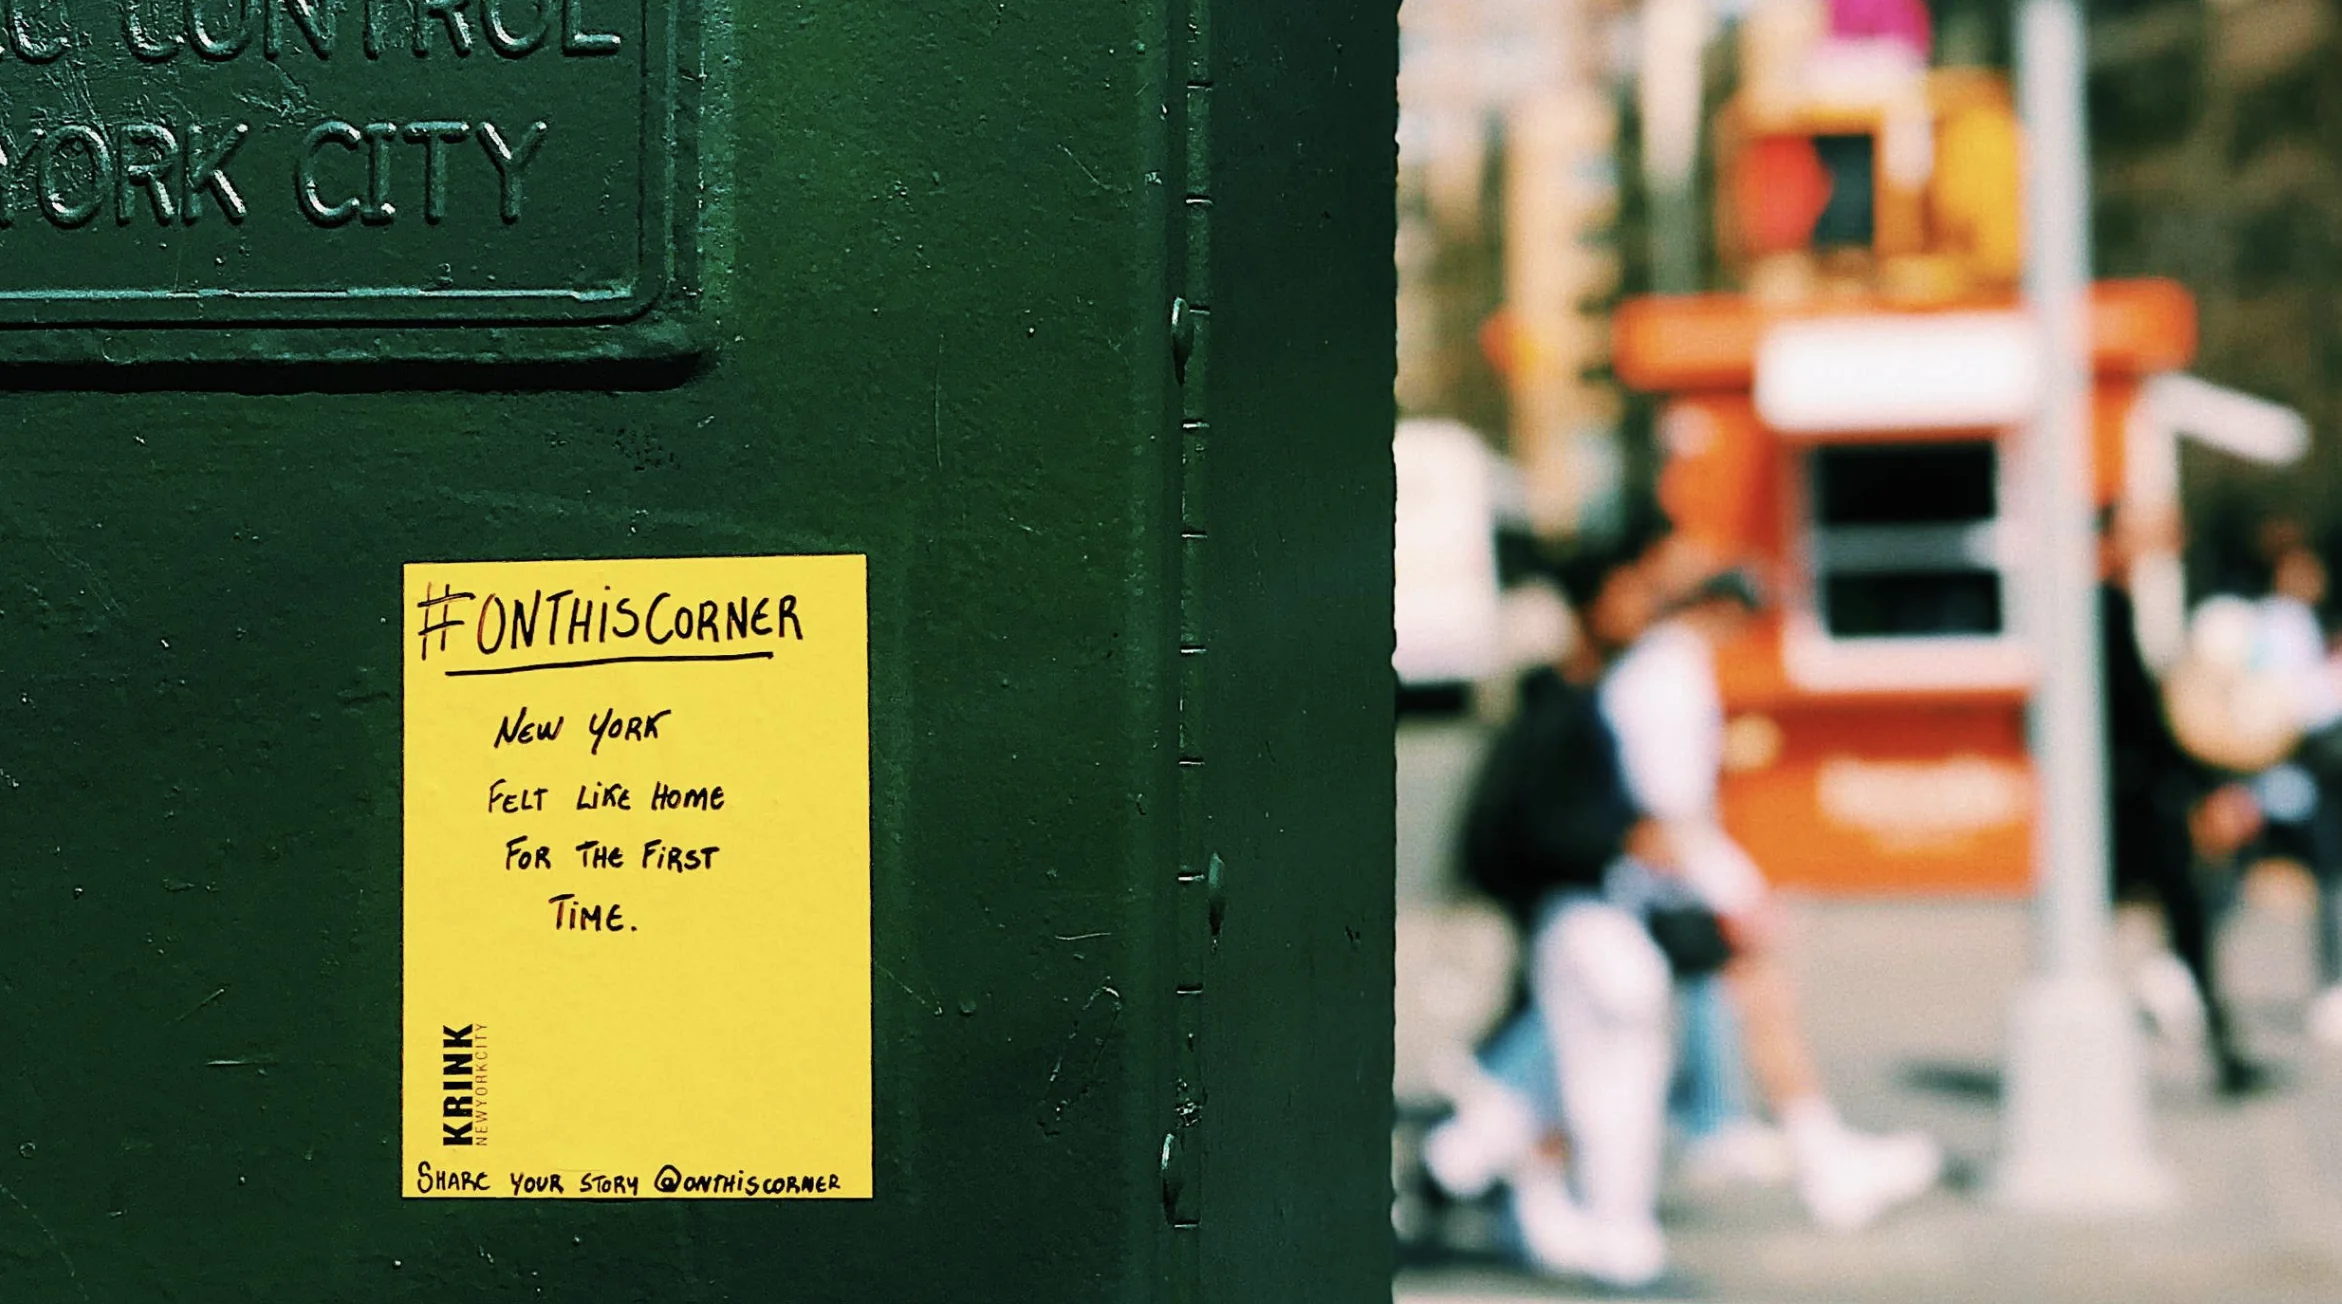 CONTROL
YORK CITY
#ONTHISCORNER
NEW YORK
FELT LIKE HOME
FOR THE FIRST
TIME.
KRINK
NEWYORKCITY
SHARE YOUR STORY @ONTHISCORNER